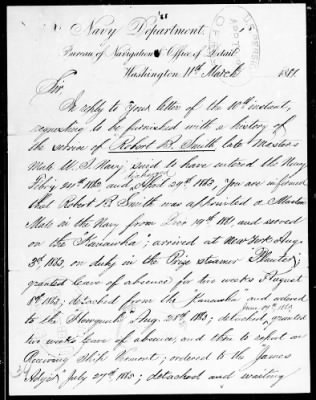 Navy Department,
Bureau of Navigation & Office of Detail
Washington 11th March 1881.
Sir,
In reply to your letter of the 10th instant,
requesting to be furnished with a history of
the service of Robert B. Smith late Master's
Mate U. S. Navy, said to have entered the Navy
Feby. 1862 and discharged April 29th 1863, You are informed
that Robert B. Smith was appointed a Master's
Mate in the Navy from Decr 19th 1861, and served
on the "Kanawha"; arrived at New York Aug.
3d, 1863, on duty in the Prize steamer "Planter";
granted leave of absence for two weeks August
8th 1863; detached from the Kanawha and ordered
to the "Honeysuckle" Aug. 28th 1863; detached, granted
two weeks leave of absence, and then to report on
Receiving Ship Vermont; ordered to the James
Adger, July 27th 1863; detached and waiting